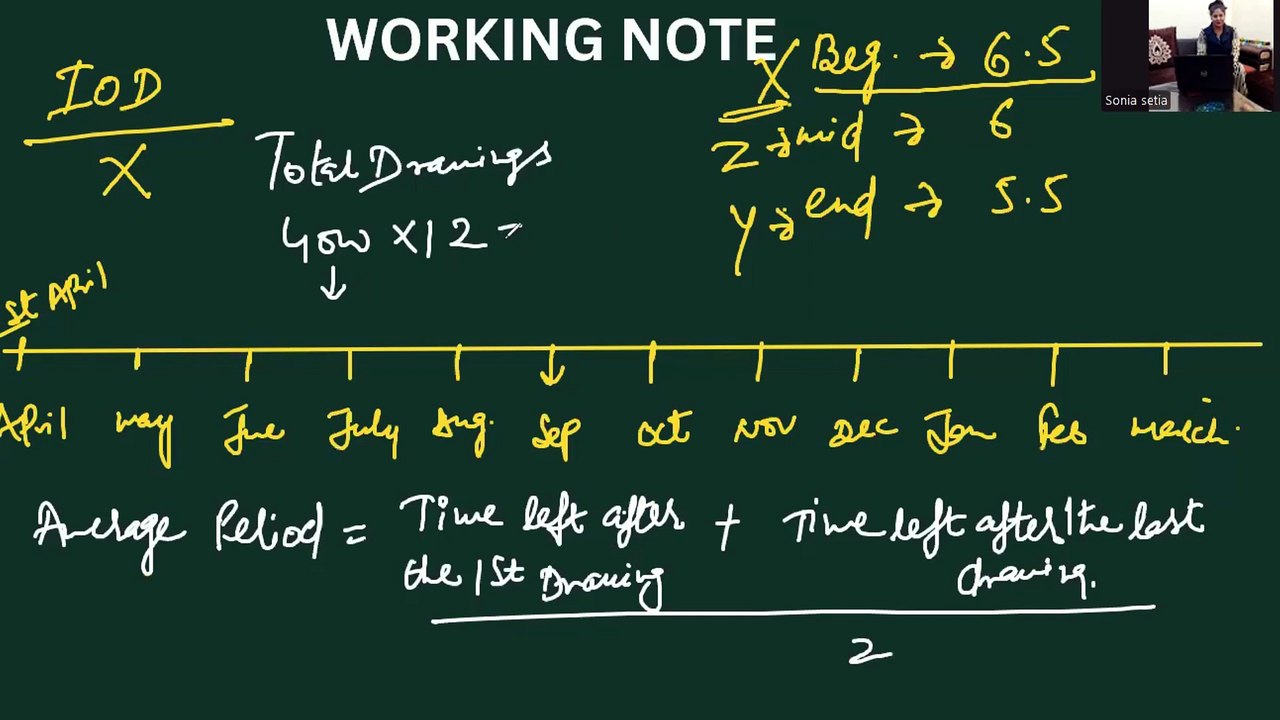 WORKING NOTE
IOD
X
Total Drawings
400 X12 =
X Beg. → 6.5
Z → mid → 6
y → end → 5.5
Sonia setia
1st April
April may Jue July Aug. Sep Oct Nov Dec Jan Feb March.
Average Period = Time left after the 1st Drawing + Time left after the last drawing.
2